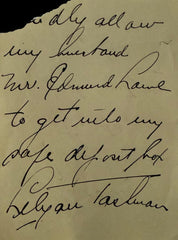 ndly allow
my husband
Mr. Edmund Lowe
to get into my
safe deposit box
Lilyan Tashman